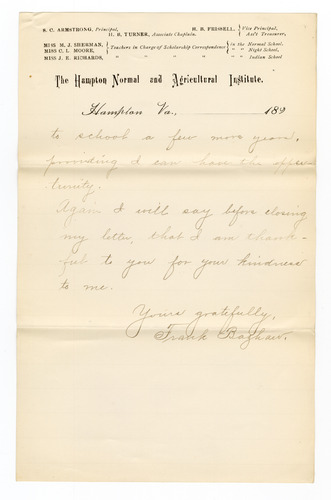 S. C. ARMSTRONG, Principal,
H. B. TURNER, Associate Chaplain.
H. B. FRISSELL, { Vice Principal,
Ass't Treasurer,
MISS M. J. SHERMAN,
MISS C. L. MOORE,
MISS J. E. RICHARDS,
} Teachers in Charge of Scholarship Correspondence { in the Normal School.
" " " " " Night School.
" " " " " Indian School
The Hampton Normal and Agricultural Institute.
Hampton Va., 189
to school a few more years,
providing I can have the oppor
tunity.
Again I will say before closing
my letter, that I am thank-
ful to you for your kindness
to me.
Yours gratefully,
Frank